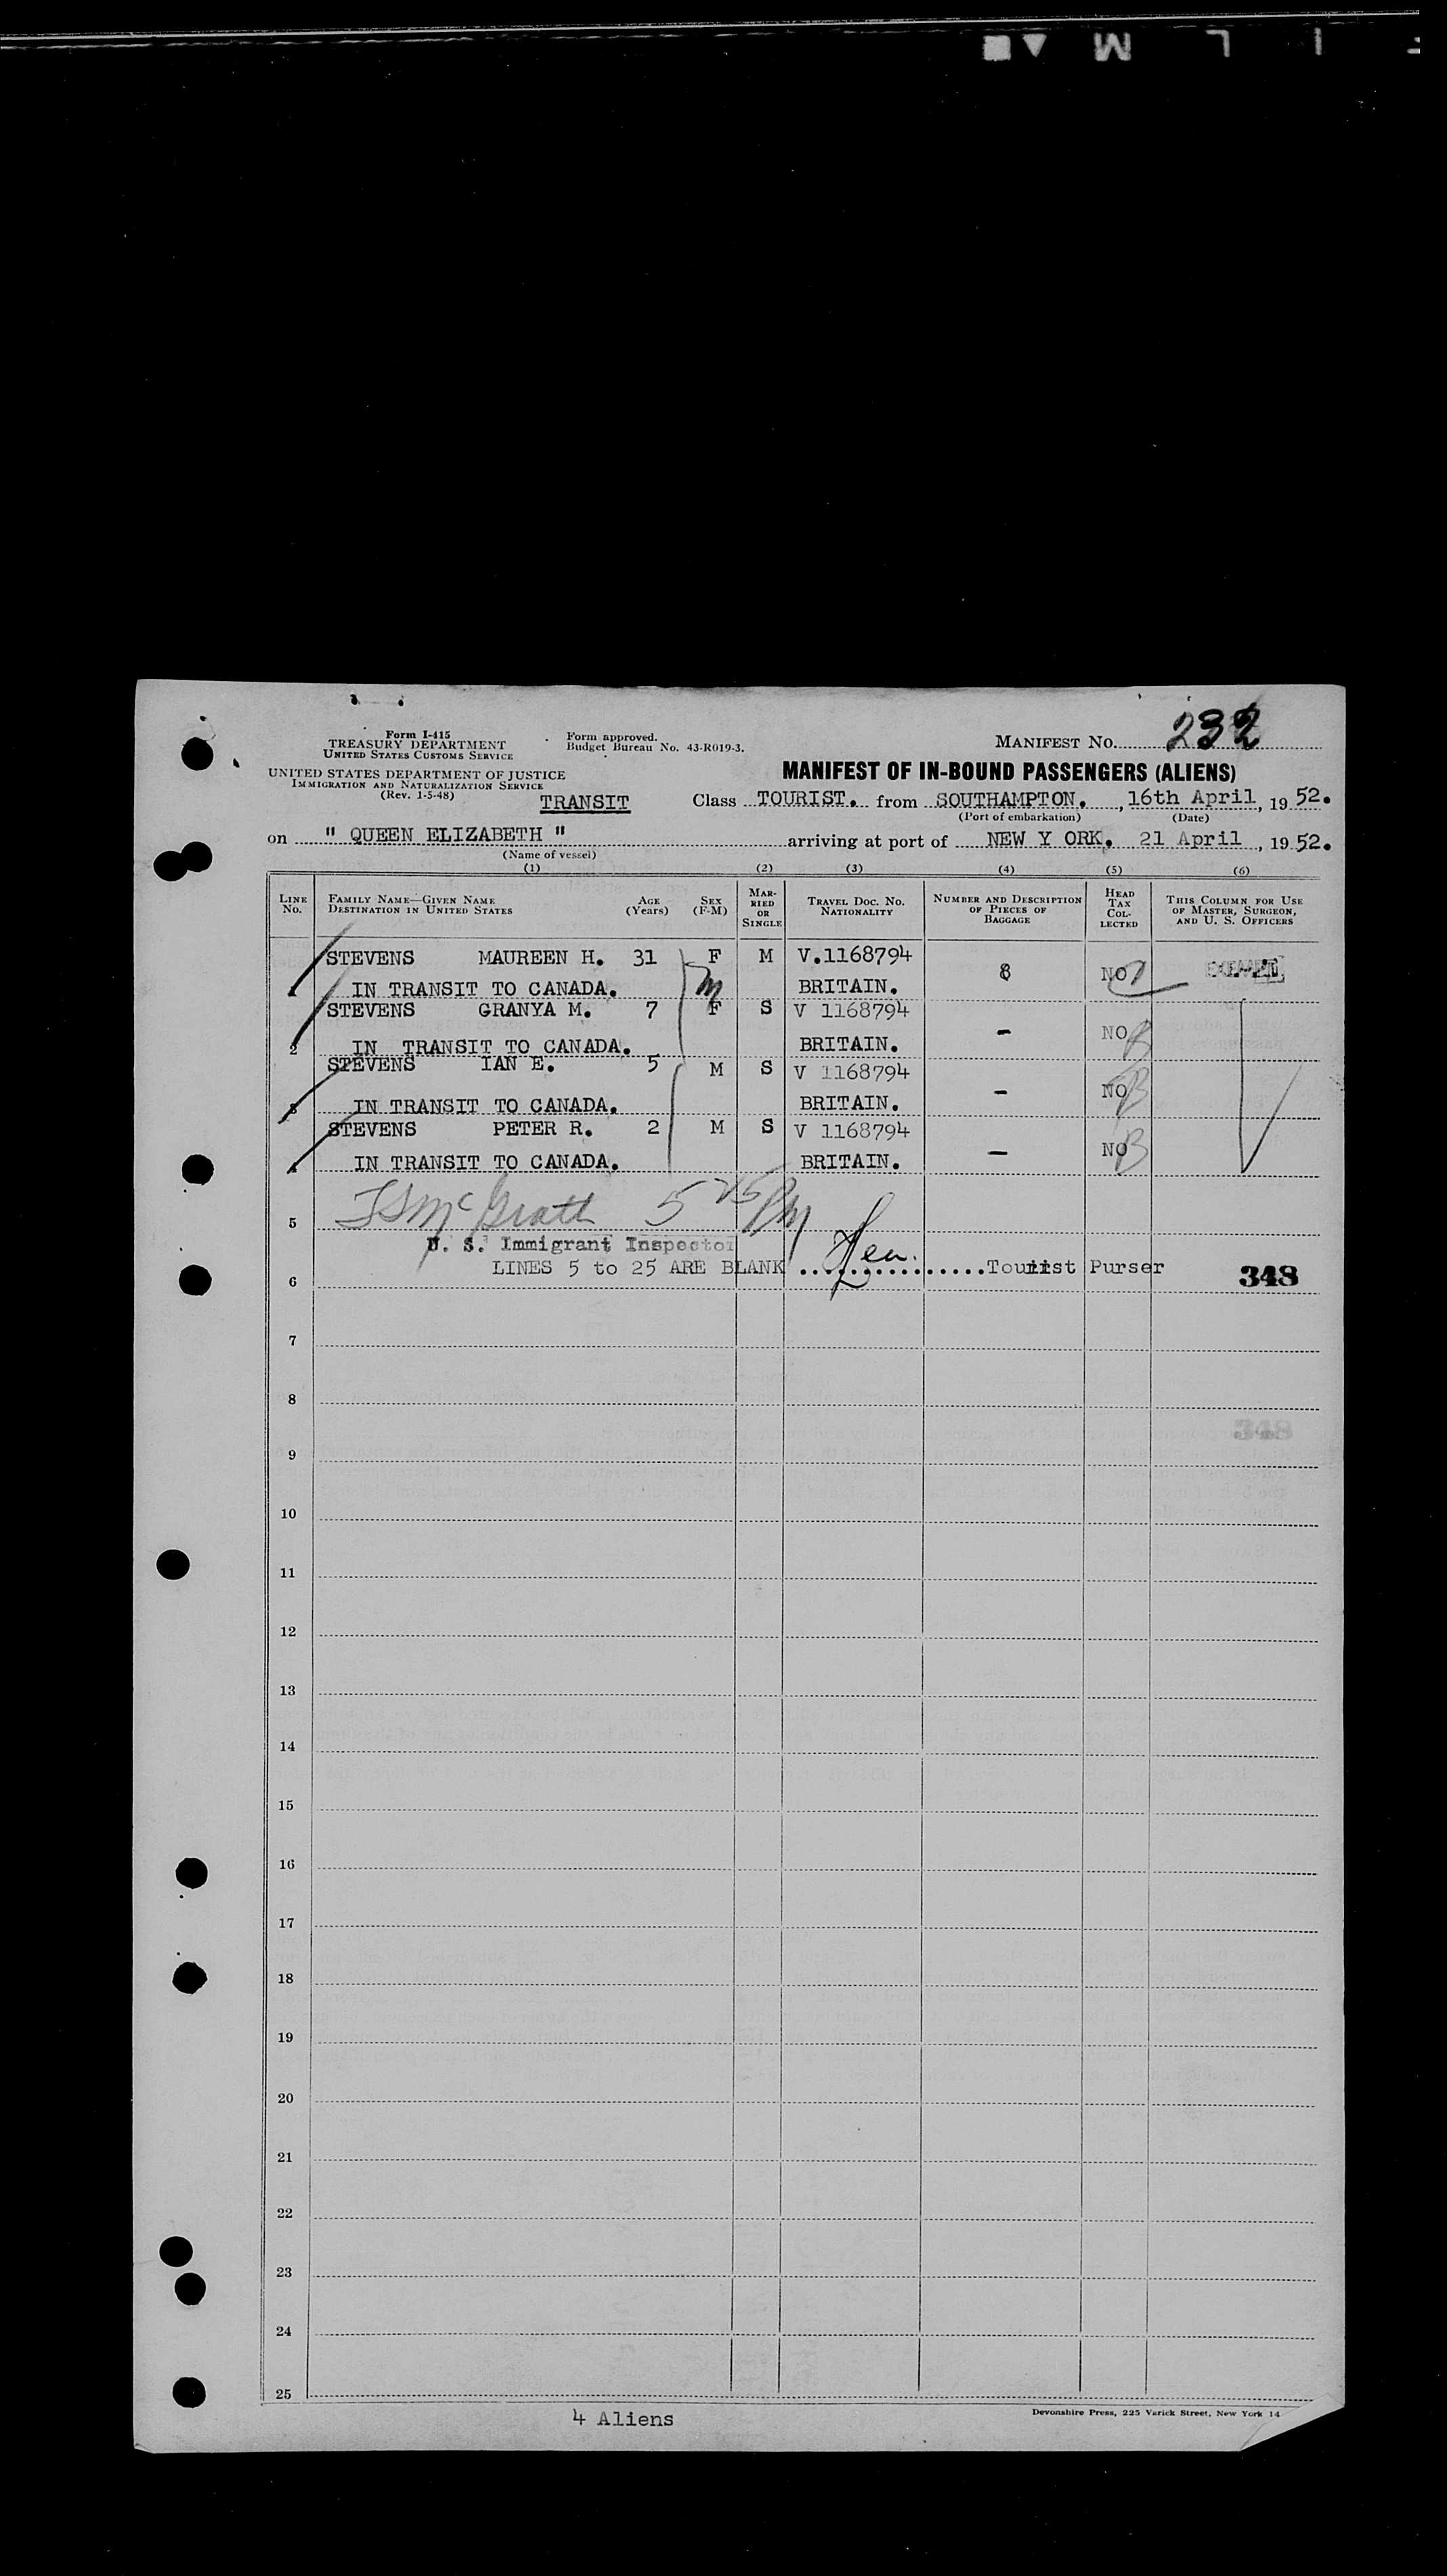 Form I-415
TREASURY DEPARTMENT
UNITED STATES CUSTOMS SERVICE
Form approved.
Budget Bureau No. 43-R019-3.
MANIFEST NO. 232
UNITED STATES DEPARTMENT OF JUSTICE
IMMIGRATION AND NATURALIZATION SERVICE
(Rev. 1-5-48)
MANIFEST OF IN-BOUND PASSENGERS (ALIENS)
TRANSIT Class TOURIST. from SOUTHAMPTON. , 16th April, 19 52.
(Port of embarkation) (Date)
on " QUEEN ELIZABETH " arriving at port of NEW Y ORK. 21 April , 19 52.
(Name of vessel)
(1) (2) (3) (4) (5) (6)
LINE NO. FAMILY NAME—GIVEN NAME DESTINATION IN UNITED STATES AGE (Years) SEX (F-M) MARRIED OR SINGLE TRAVEL DOC. NO. NATIONALITY NUMBER AND DESCRIPTION OF PIECES OF BAGGAGE HEAD TAX COLLECTED THIS COLUMN FOR USE OF MASTER, SURGEON, AND U. S. OFFICERS
STEVENS MAUREEN H. 31 F M V.1168794 8 NO
IN TRANSIT TO CANADA. m BRITAIN.
STEVENS GRANYA M. 7 F S V 1168794 - NO B
2 IN TRANSIT TO CANADA. BRITAIN.
STEVENS IAN E. 5 M S V 1168794 - NO B
3 IN TRANSIT TO CANADA. BRITAIN.
STEVENS PETER R. 2 M S V 1168794 - NO B
4 IN TRANSIT TO CANADA. BRITAIN.
5 McGrath 5 25 PM
U. S. Immigrant Inspector
6 LINES 5 to 25 ARE BLANK ................Tourist Purser 348
7
8
348
9
10
11
12
13
14
15
16
17
18
19
20
21
22
23
24
25
4 Aliens
Devonshire Press, 225 Varick Street, New York 14